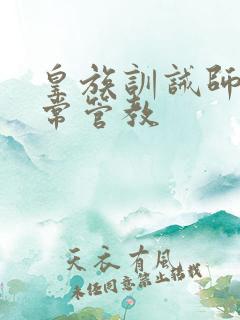 皇族訓誡師
常管教
天衣有風
未經同意禁止轉載